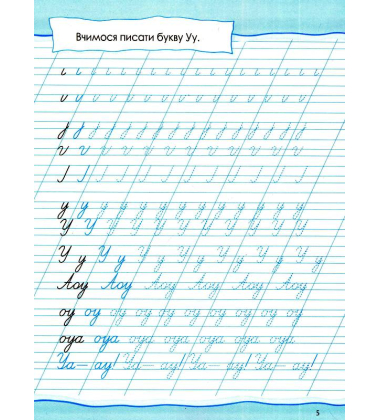 Вчимося писати букву Уу.
у у у у у у у у у у у
У У У У У У У У У У
У у У у У у У у У у У у
Аоу Аоу Аоу Аоу Аоу Аоу
оу оу оу оу оу оу оу оу оу
оуа оуа оуа оуа оуа оуа оуа
Уа – ау! Уа – ау! Уа – ау! Уа – ау!
5